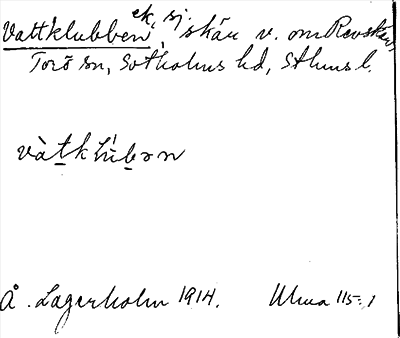 Vattklubben, ek, sj, skär v. om Revskär,
Torö sn, Sotholms hd, Sthlms l.
vàtklúbən
Å. Lagerholm 1914. Uhma 115:1